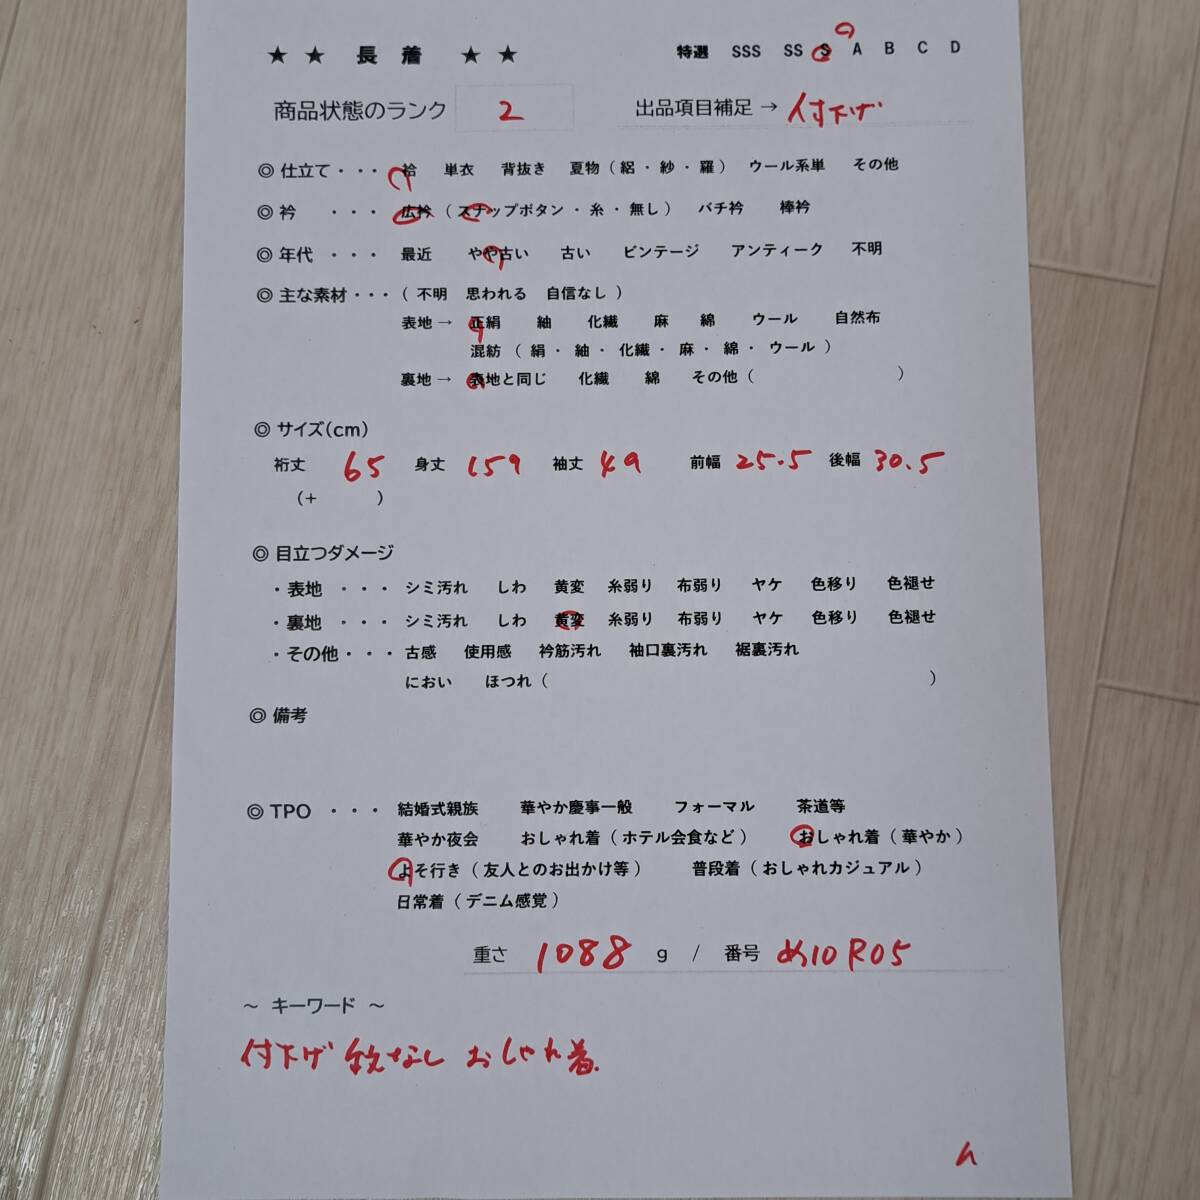 ★ ★ 長 着 ★ ★ 特選 SSS SS S A B C D
商品状態のランク 2 出品項目補足 → 付下げ
◎ 仕立て・・・ 袷 単衣 背抜き 夏物（絽・紗・羅） ウール系単 その他
◎ 衿 ・・・ 広衿（スナップボタン・糸・無し） バチ衿 棒衿
◎ 年代 ・・・ 最近 やや古い 古い ビンテージ アンティーク 不明
◎ 主な素材・・・（不明 思われる 自信なし）
表地 → 正絹 紬 化繊 麻 綿 ウール 自然布
混紡（絹・紬・化繊・麻・綿・ウール）
裏地 → 表地と同じ 化繊 綿 その他（ ）
◎ サイズ(cm)
裄丈 65 身丈 159 袖丈 49 前幅 25.5 後幅 30.5
(+ )
◎ 目立つダメージ
・表地 ・・・ シミ汚れ しわ 黄変 糸弱り 布弱り ヤケ 色移り 色褪せ
・裏地 ・・・ シミ汚れ しわ 黄変 糸弱り 布弱り ヤケ 色移り 色褪せ
・その他・・・ 古感 使用感 衿筋汚れ 袖口裏汚れ 裾裏汚れ
におい ほつれ（ ）
◎ 備考
◎ TPO ・・・ 結婚式親族 華やか慶事一般 フォーマル 茶道等
華やか夜会 おしゃれ着（ホテル会食など） おしゃれ着（華やか）
よそ行き（友人とのお出かけ等） 普段着（おしゃれカジュアル）
日常着（デニム感覚）
重さ 1088 g / 番号 め10R05
～ キーワード ～
付下げ 紋なし おしゃれ着